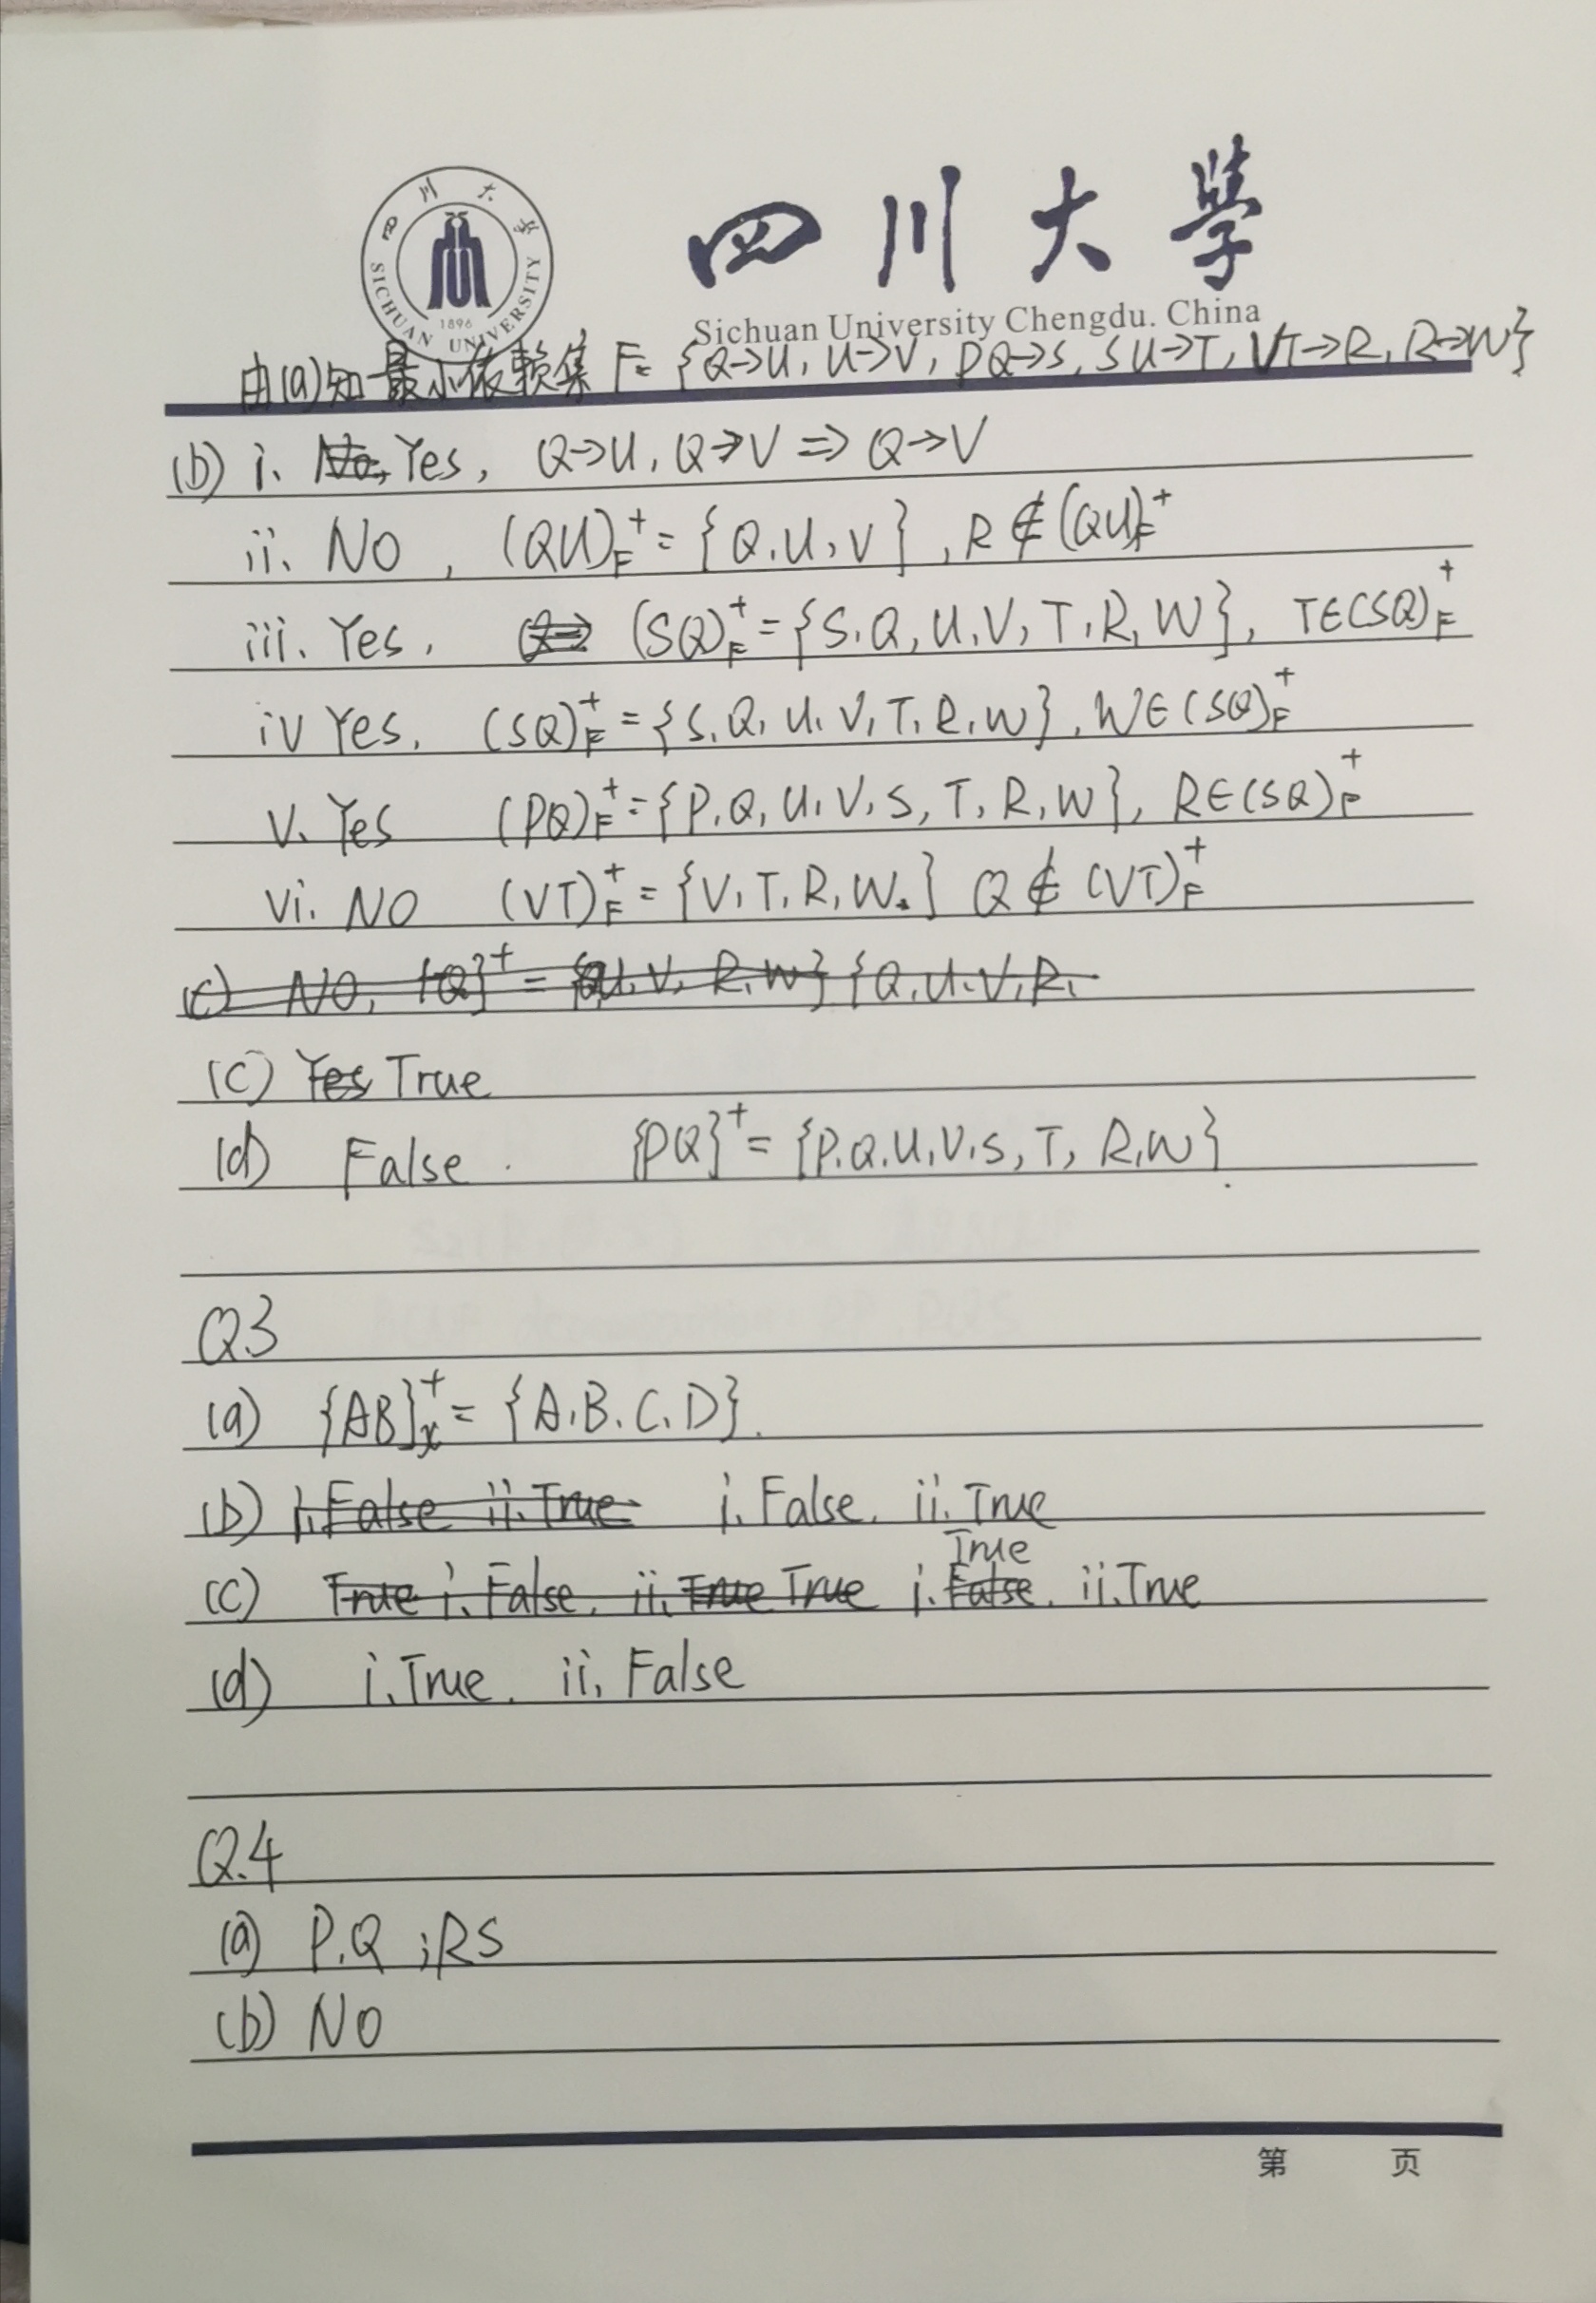 四川大学
SICHUAN UNIVERSITY
1896
四川大學
Sichuan University Chengdu. China
由(a)知最小依赖集 F= {Q→U, U→V, PQ→S, SU→T, VT→R, R→W}
(b) i. No, Yes, Q→U, Q→V ⇒ Q→V
ii. NO, (QU)_F^+ = {Q,U,V}, R∉(QU)_F^+
iii. Yes, Q⇒ (SQ)_F^+ = {S,Q,U,V,T,R,W}, T∈(SQ)_F^+
iv Yes, (SQ)_F^+ = {S,Q,U,V,T,R,W}, W∈(SQ)_F^+
V. Yes (PQ)_F^+ = {P,Q,U,V,S,T,R,W}, R∈(SQ)_F^+
vi. NO (VT)_F^+ = {V,T,R,W.} Q∉(VT)_F^+
(c) NO, {Q}^+ = {Q,U,V,R,W} {Q,U,V,R,
(c) Yes True
(d) False. {PQ}^+ = {P,Q,U,V,S,T,R,W}.
Q3
(a) {AB}_x^+ = {A,B,C,D}.
(b) i.False ii.True i.False. ii.True
(c) True i.False. ii.True True i.False True. ii.True
(d) i.True. ii. False
Q.4
(a) P,Q ; RS
(b) NO
第 页